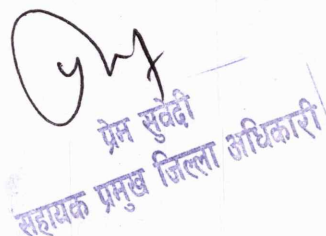 प्रेम सुवेदी
सहायक प्रमुख जिल्ला अधिकारी